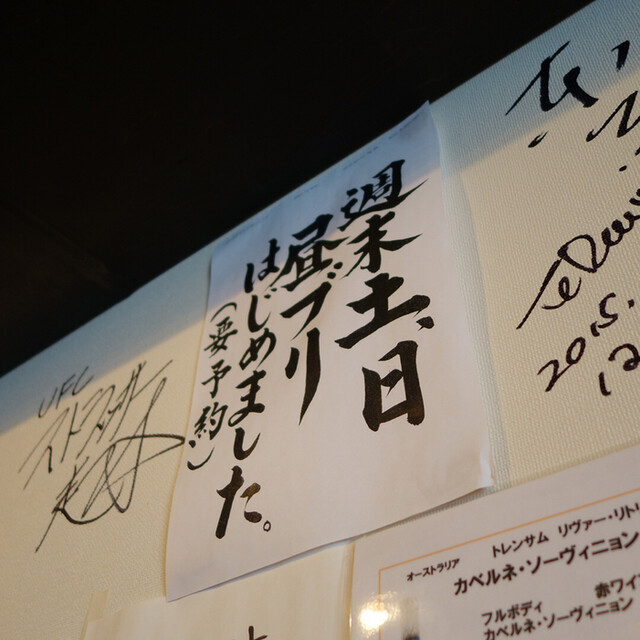 週末土、日
昼ブリ
はじめました。
(要予約)
UFC
2015.
12
オーストラリア
トレンサム リヴァー・リトリ
カベルネ・ソーヴィニョン
フルボディ
赤ワイ
カベルネ・ソーヴィニョン